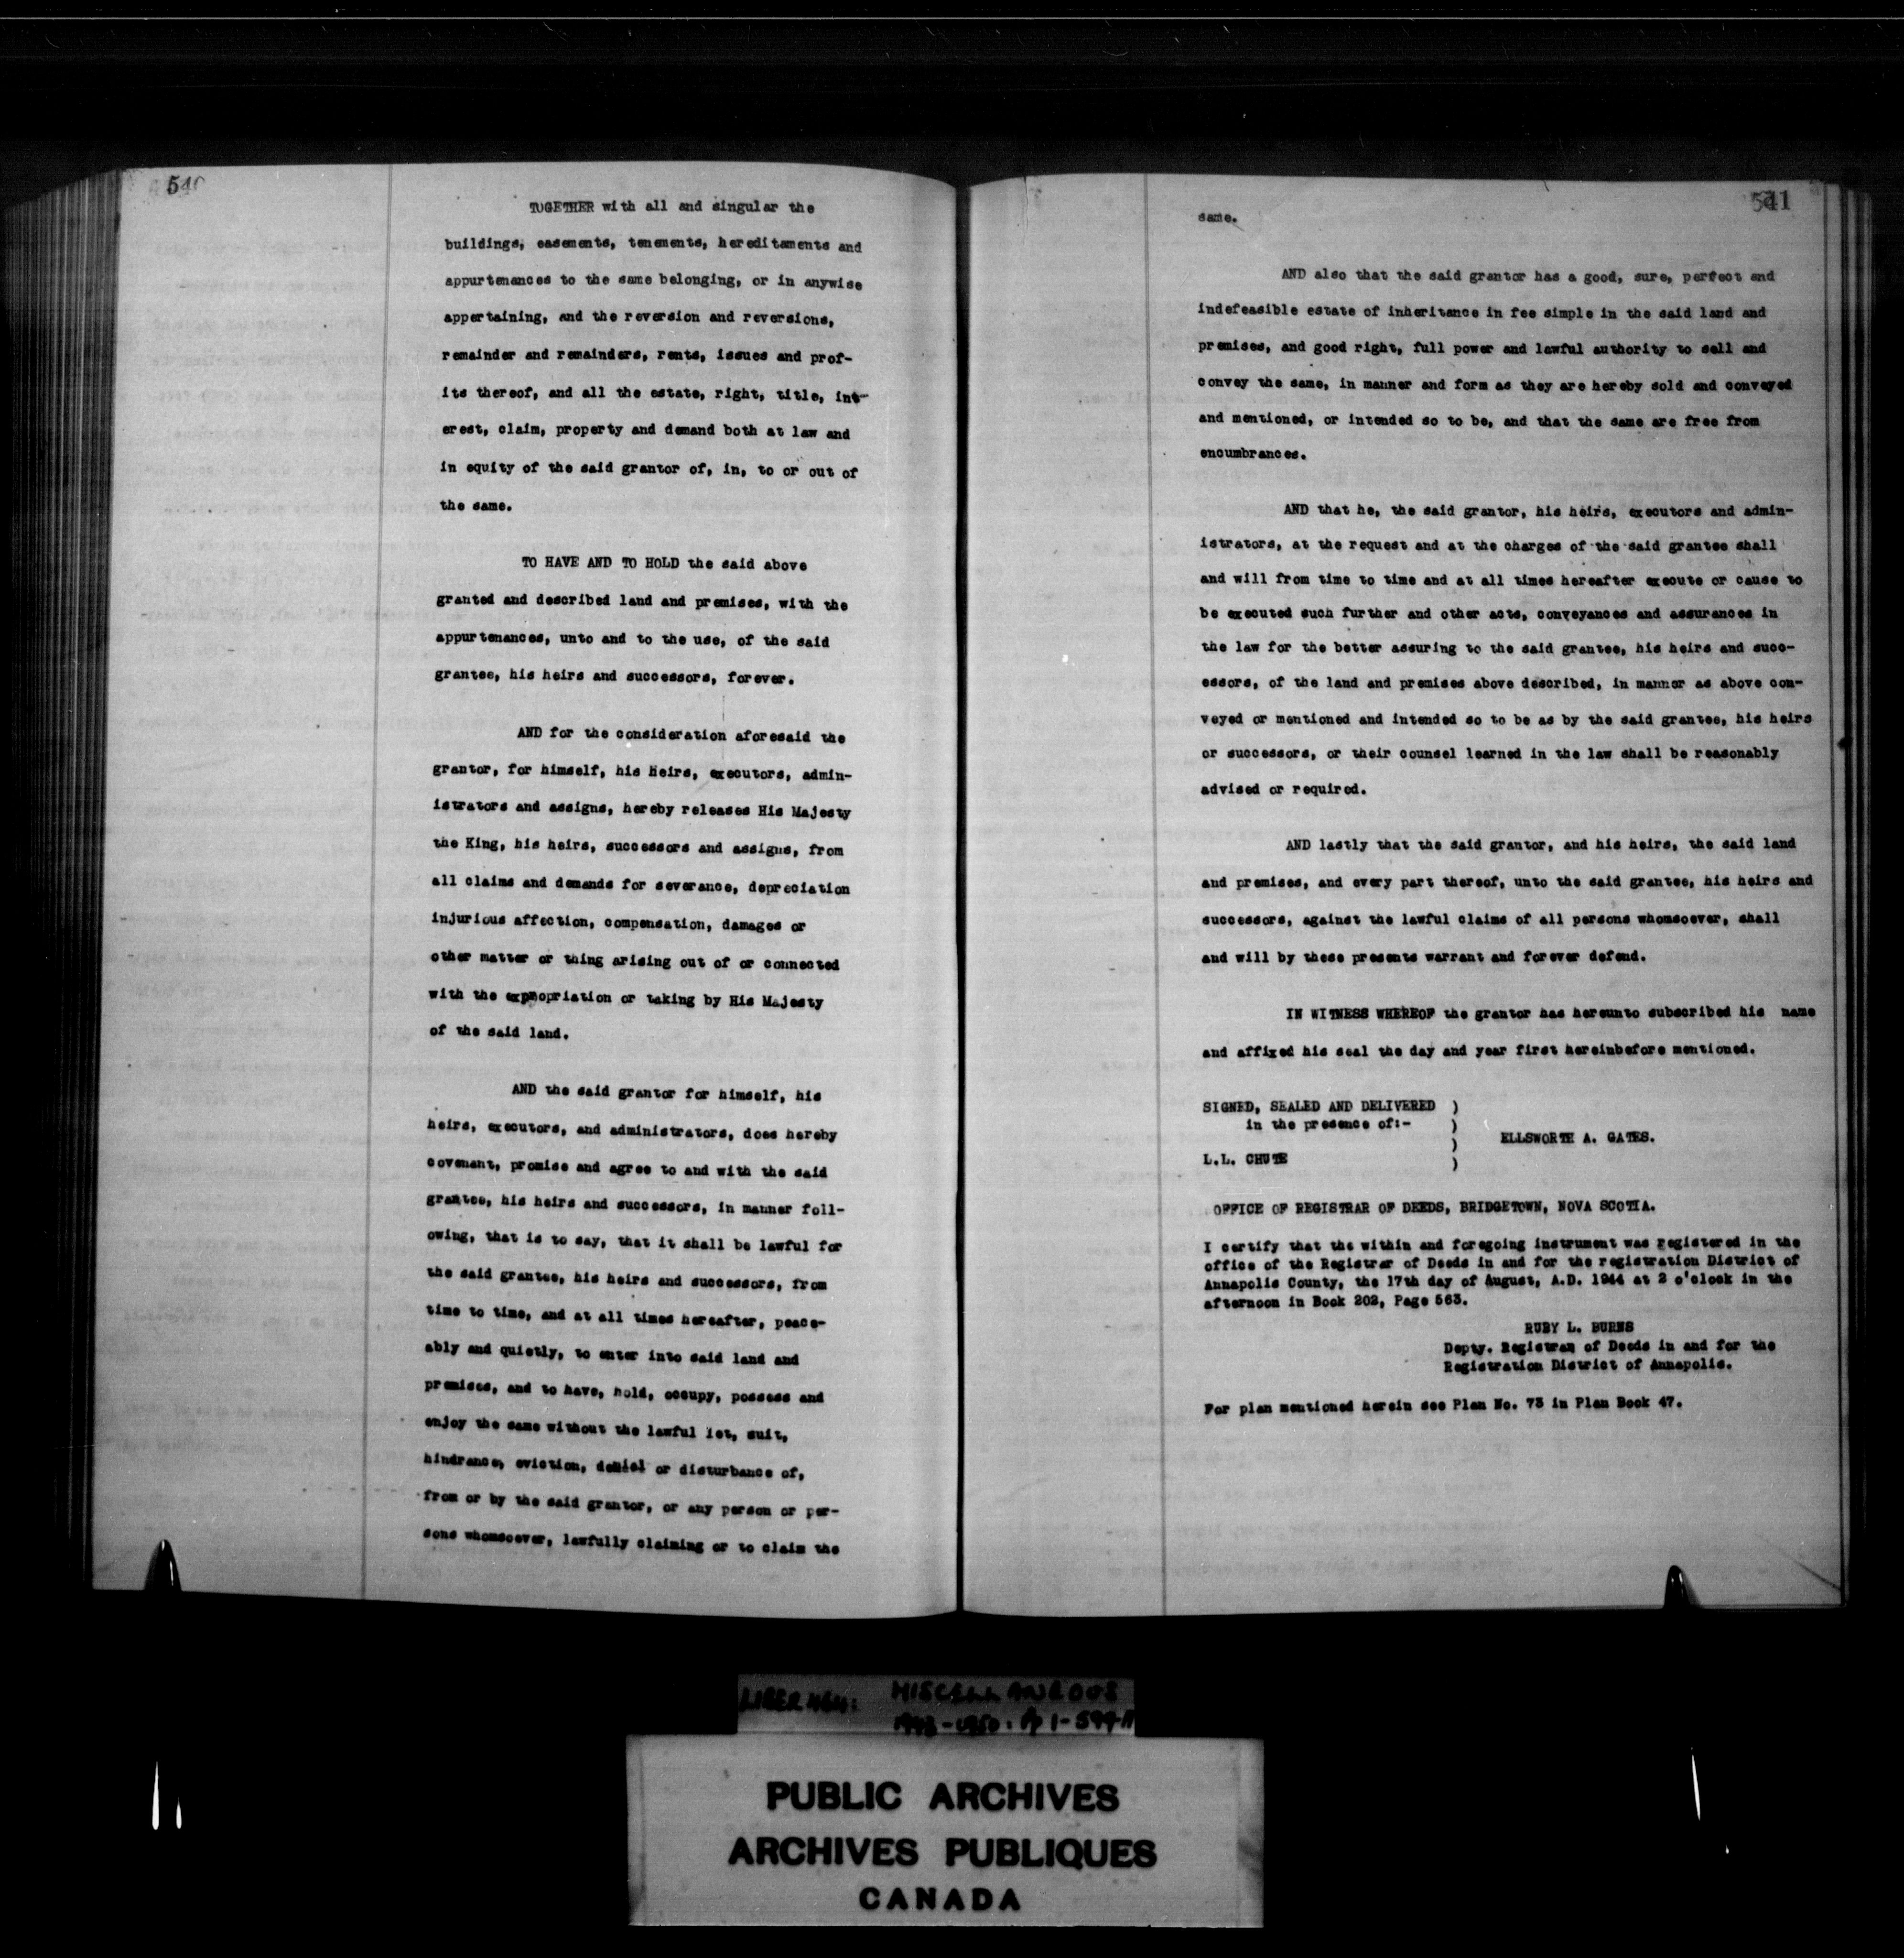 540
TOGETHER with all and singular the
buildings, easements, tenements, hereditaments and
appurtenances to the same belonging, or in anywise
appertaining, and the reversion and reversions,
remainder and remainders, rents, issues and prof-
its thereof, and all the estate, right, title, int-
erest, claim, property and demand both at law and
in equity of the said grantor of, in, to or out of
the same.
TO HAVE AND TO HOLD the said above
granted and described land and premises, with the
appurtenances, unto and to the use, of the said
grantee, his heirs and successors, forever.
AND for the consideration aforesaid the
grantor, for himself, his heirs, executors, admin-
istrators and assigns, hereby releases His Majesty
the King, his heirs, successors and assigns, from
all claims and demands for severance, depreciation
injurious affection, compensation, damages or
other matter or thing arising out of or connected
with the expropriation or taking by His Majesty
of the said land.
AND the said grantor for himself, his
heirs, executors, and administrators, does hereby
covenant, promise and agree to and with the said
grantee, his heirs and successors, in manner foll-
owing, that is to say, that it shall be lawful for
the said grantee, his heirs and successors, from
time to time, and at all times hereafter, peace-
ably and quietly, to enter into said land and
premises, and to have, hold, occupy, possess and
enjoy the same without the lawful let, suit,
hindrance, eviction, denial or disturbance of,
from or by the said grantor, or any person or per-
sons whomsoever, lawfully claiming or to claim the
541
same.
AND also that the said grantor has a good, sure, perfect and
indefeasible estate of inheritance in fee simple in the said land and
premises, and good right, full power and lawful authority to sell and
convey the same, in manner and form as they are hereby sold and conveyed
and mentioned, or intended so to be, and that the same are free from
encumbrances.
AND that he, the said grantor, his heirs, executors and admin-
istrators, at the request and at the charges of the said grantee shall
and will from time to time and at all times hereafter execute or cause to
be executed such further and other acts, conveyances and assurances in
the law for the better assuring to the said grantee, his heirs and succ-
essors, of the land and premises above described, in manner as above con-
veyed or mentioned and intended so to be as by the said grantee, his heirs
or successors, or their counsel learned in the law shall be reasonably
advised or required.
AND lastly that the said grantor, and his heirs, the said land
and premises, and every part thereof, unto the said grantee, his heirs and
successors, against the lawful claims of all persons whomsoever, shall
and will by these presents warrant and forever defend.
IN WITNESS WHEREOF the grantor has hereunto subscribed his name
and affixed his seal the day and year first hereinbefore mentioned.
SIGNED, SEALED AND DELIVERED )
in the presence of:- )
) ELLSWORTH A. GATES.
L.L. CHUTE )
OFFICE OF REGISTRAR OF DEEDS, BRIDGETOWN, NOVA SCOTIA.
I certify that the within and foregoing instrument was registered in the
office of the Registrar of Deeds in and for the registration District of
Annapolis County, the 17th day of August, A.D. 1944 at 2 o'clock in the
afternoon in Book 202, Page 563.
RUBY L. BURNS
Depty. Registrar of Deeds in and for the
Registration District of Annapolis.
For plan mentioned herein see Plan No. 73 in Plan Book 47.
LIBER 464: MISCELLANEOUS
1943-1950. Pp 1-599
PUBLIC ARCHIVES
ARCHIVES PUBLIQUES
CANADA